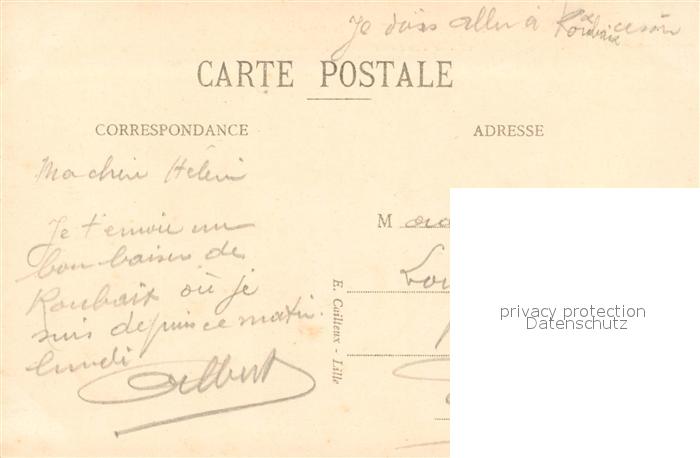 Je dois aller à Roubaix ce soir
CARTE POSTALE
CORRESPONDANCE
ADRESSE
Ma chère Hélène
Je t'envoie un
bon baiser de
Roubaix où je
suis depuis ce matin
lundi
Albert
M
E. Cailleux - Lille
privacy protection
Datenschutz